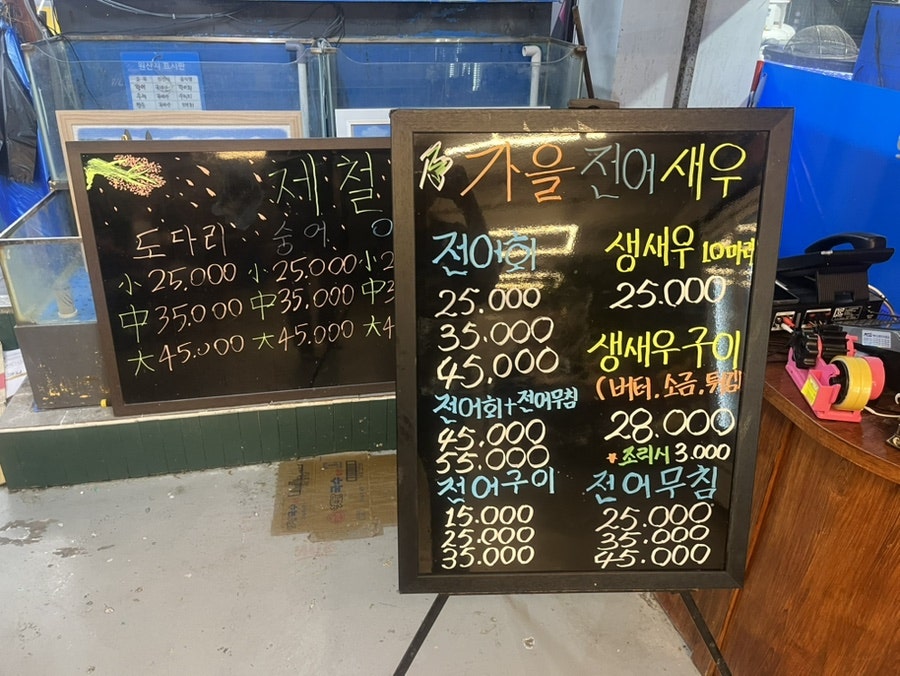 제철
도다리 숭어
小 25.000 小 25.000 小 2
中 35.000 中 35.000 中 3
大 45.000 大 45.000 大 4
가을 전어 새우
전어회
25.000
35.000
45.000
전어회+전어무침
45.000
55.000
전어구이
15.000
25.000
35.000
생새우 10마리
25.000
생새우구이
(버터.소금.튀김
28.000
*조리시 3.000
전어무침
25.000
35.000
45.000
원산지 표시판